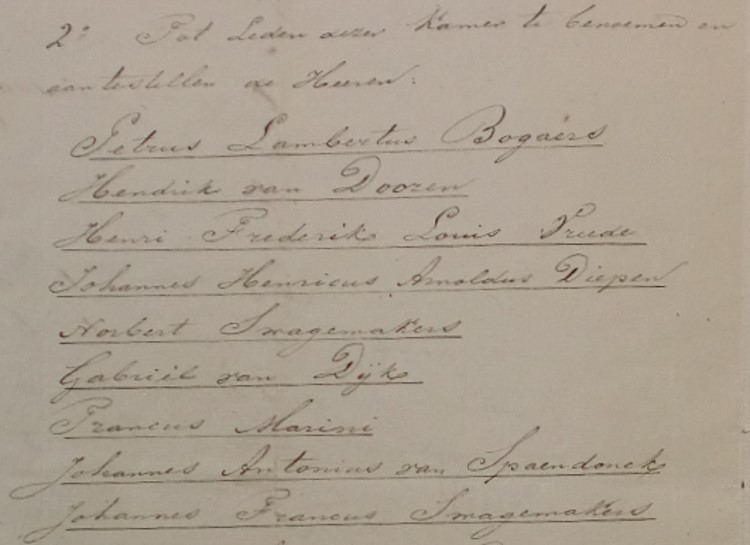 2º Tot Leden dezer Kamer te benoemen en
aantestellen de Heeren:
Petrus Lambertus Bogaers
Hendrik van Dooren
Henri Frederik Louis Vreede
Johannes Henricus Arnoldus Diepen
Norbert Swagemakers
Gabriël van Dijk
Francus Marini
Johannes Antonius van Spaendonck
Johannes Francus Swagemakers